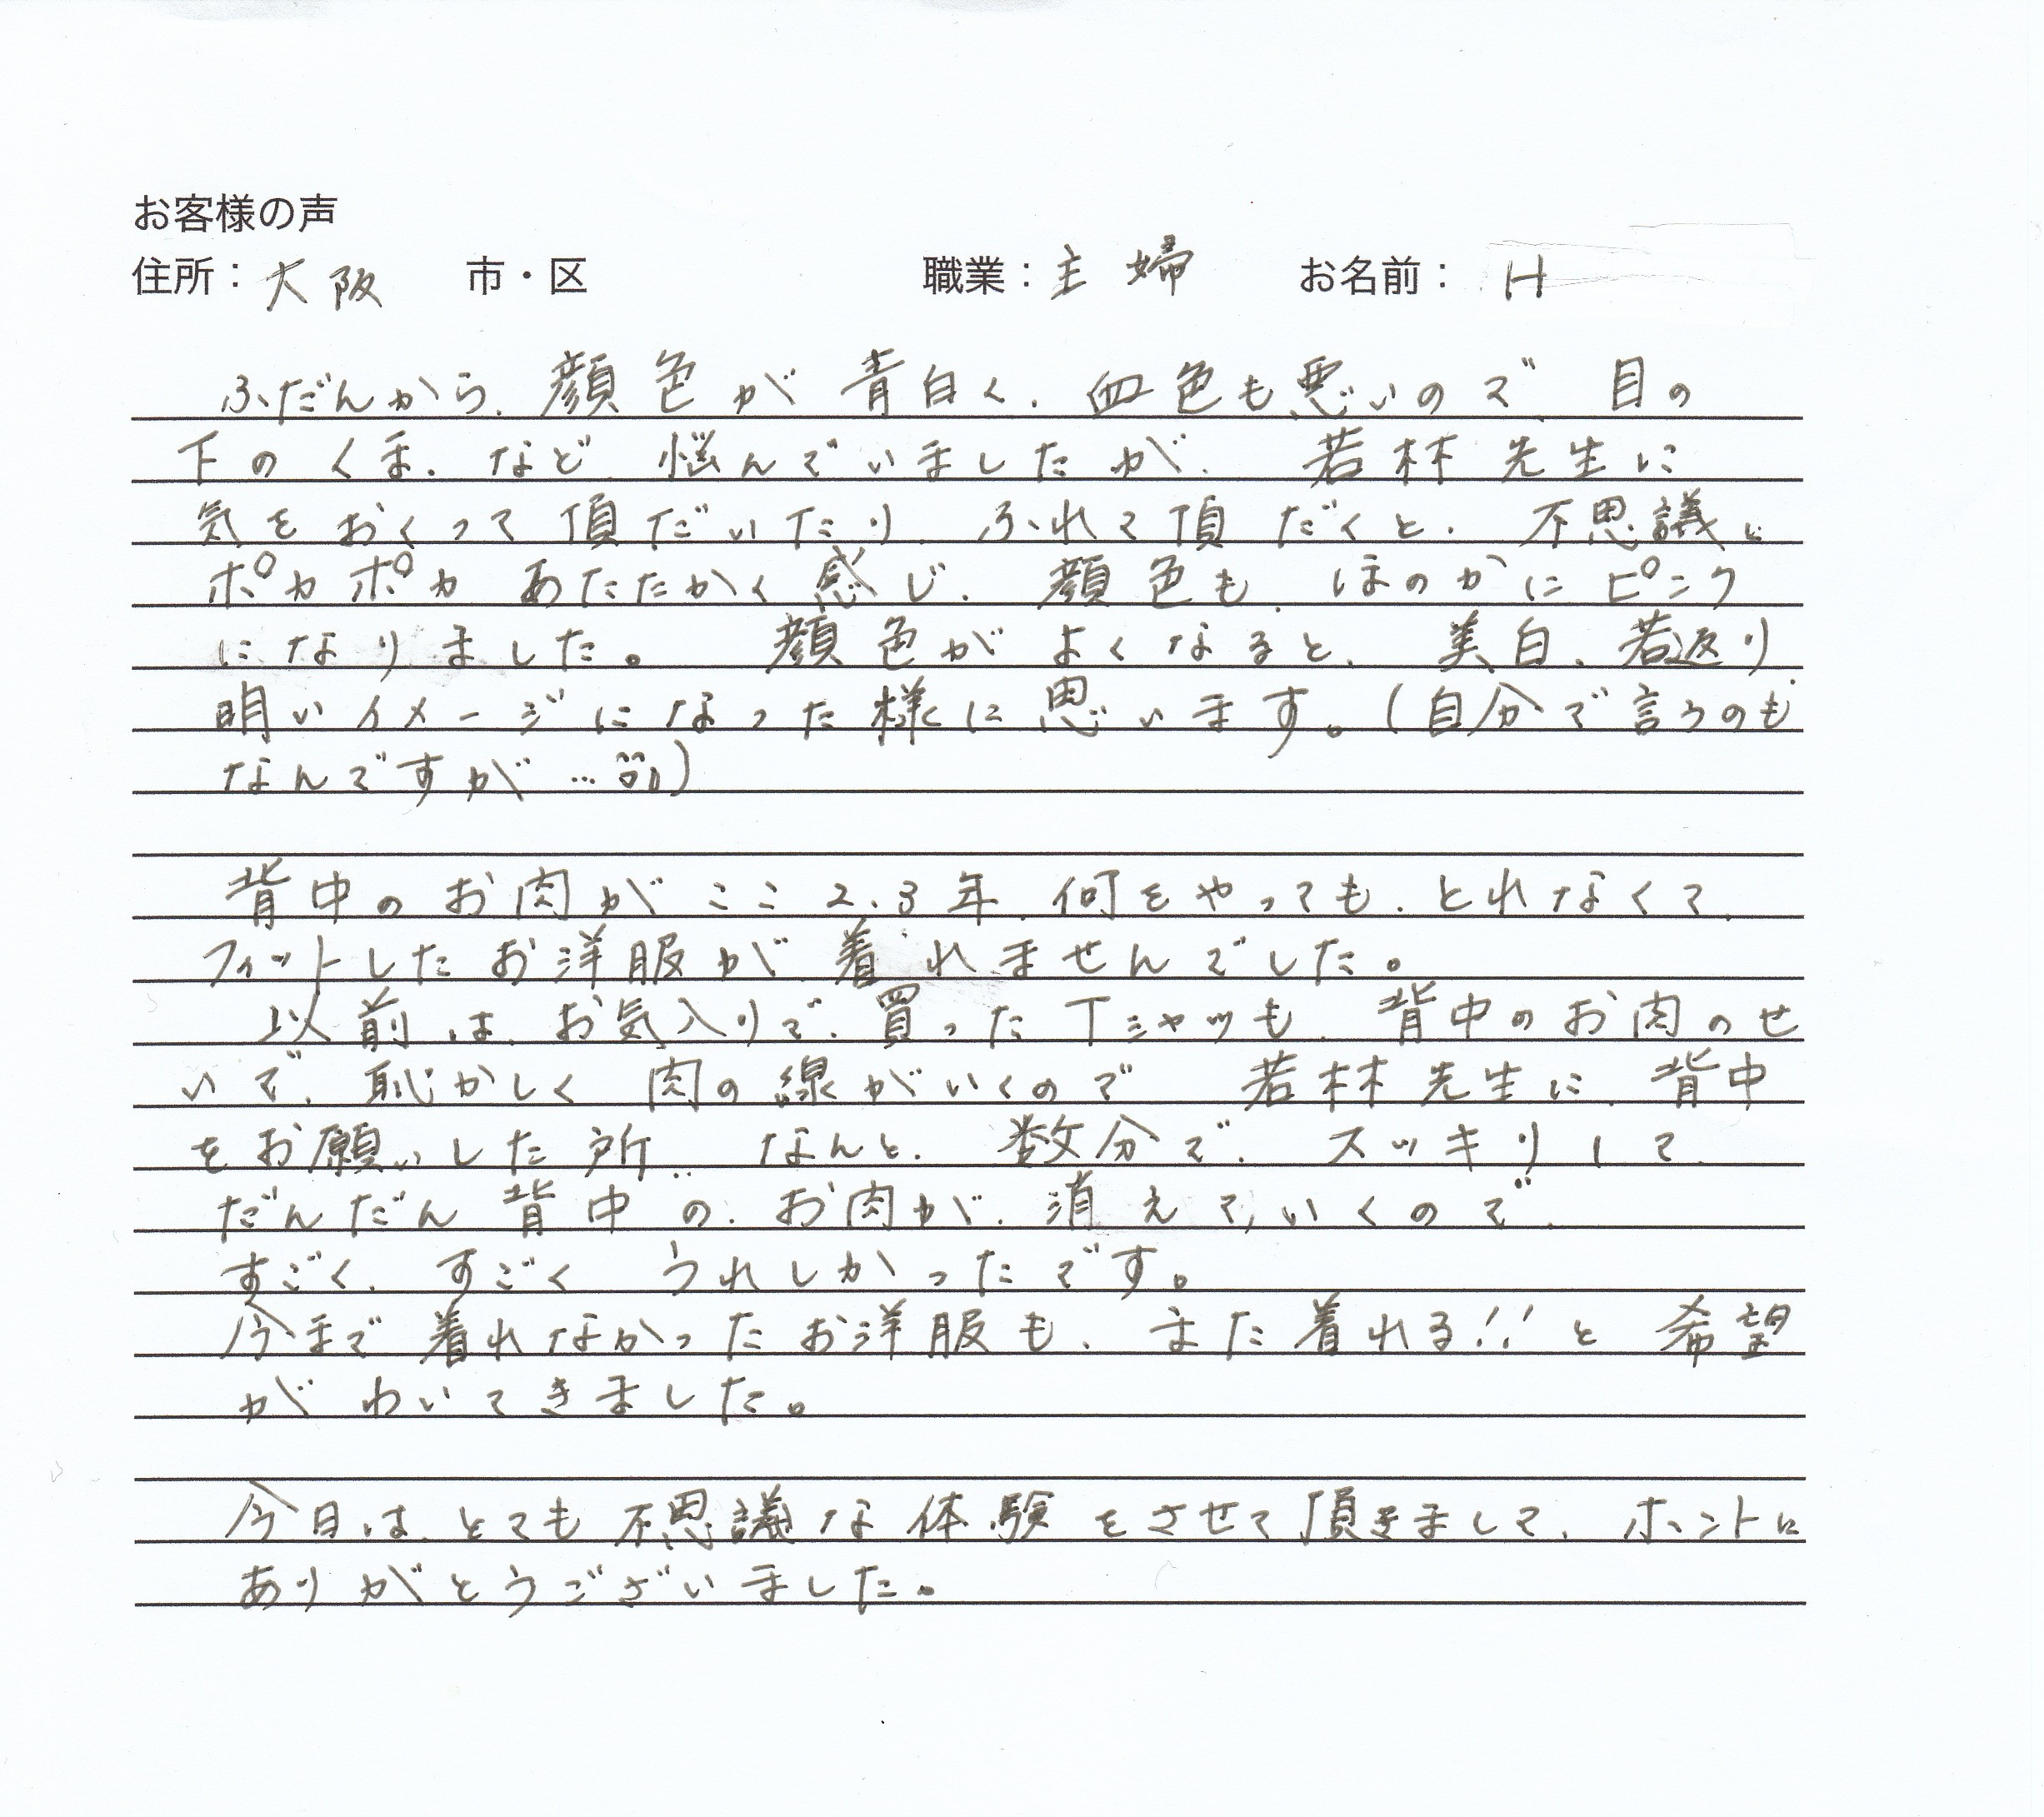 お客様の声
住所：大阪 市・区 職業：主婦 お名前：H
ふだんから、顔色が青白く、血色も悪いので、目の
下のくま、など、悩んでいましたが、若林先生に
気をおくって頂だいたり、ふれて頂だくと、不思議に
ポカポカあたたかく感じ、顔色も、ほのかにピンク
になりました。顔色がよくなると、美白、若返り、
明いイメージになった様に思います。(自分で言うのも
なんですが…)
背中のお肉がここ2、3年、何をやっても、とれなくて、
フィットしたお洋服が着れませんでした。
以前は、お気入りで、買ったTシャツも、背中のお肉のせ
いで、恥かしく肉の線がいくので 若林先生に、背中
をお願いした所… なんと、数分で、スッキリして、
だんだん背中の、お肉が、消えて、いくので、
すごく、すごくうれしかったです。
今まで着れなかったお洋服も、また着れる!!と希望
がわいてきました。
今日は、とても不思議な体験をさせて頂きまして、ホントに
ありがとうございました。